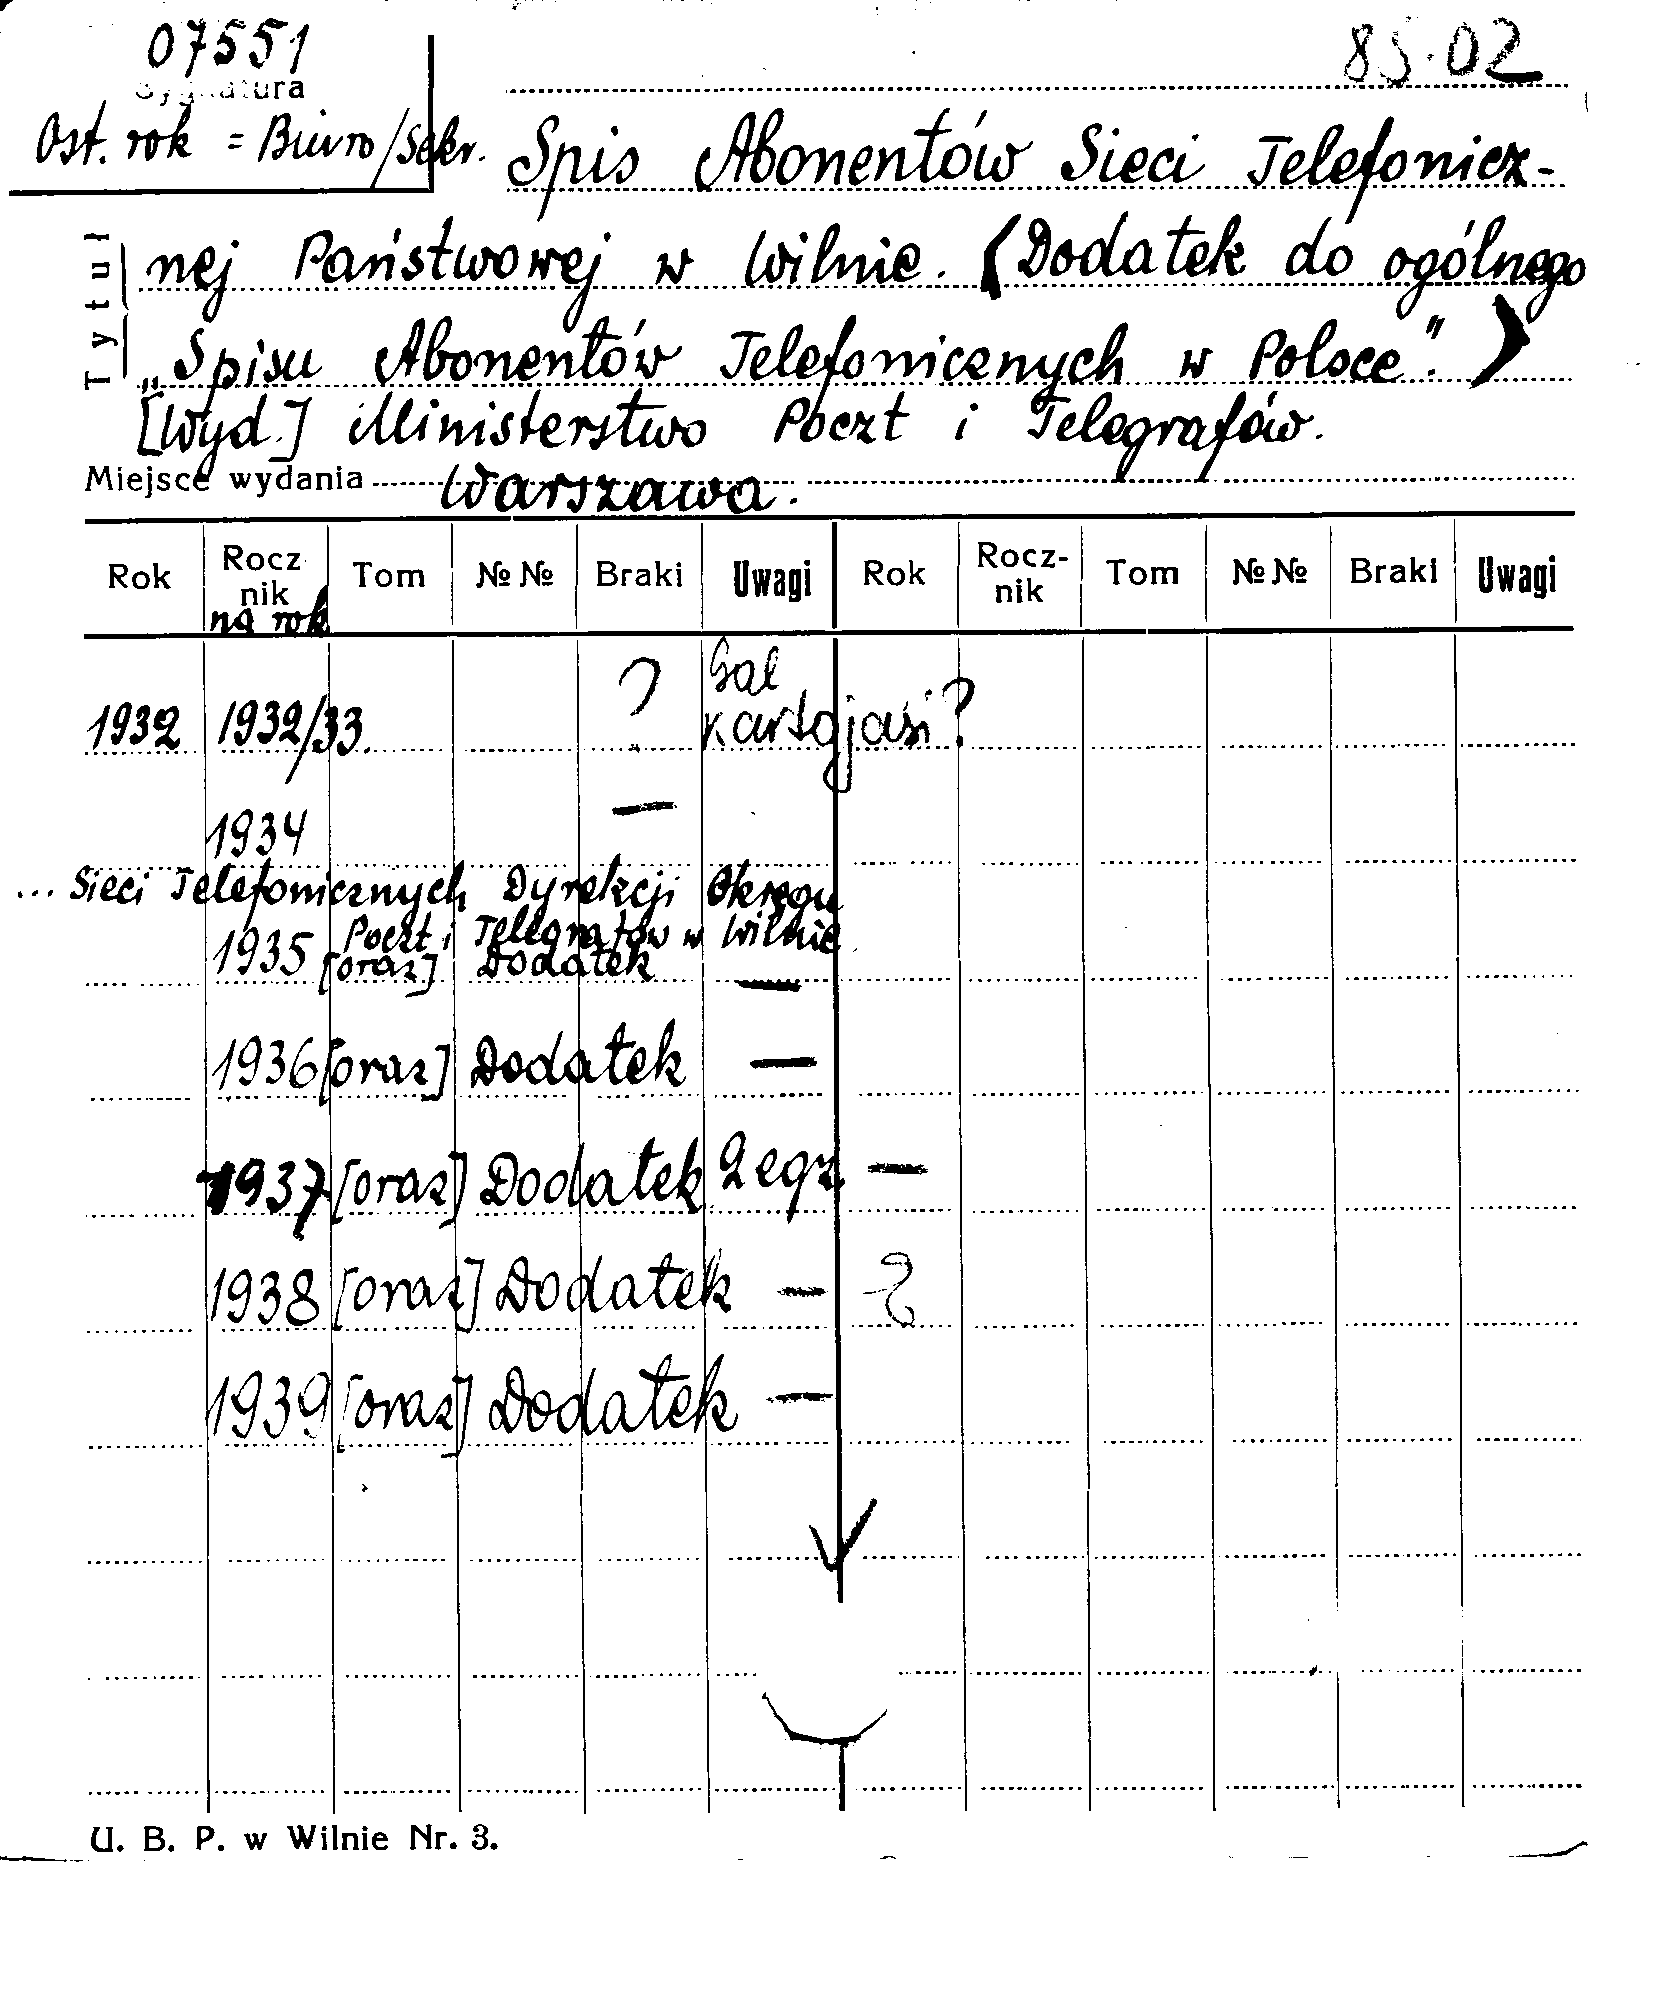 07551
85.02
Sygnatura
Ost. rok = Biuro/Sekr.
Spis Abonentów Sieci Telefonicz-
Tytuł
nej Państwowej w Wilnie. (Dodatek do ogólnego
„Spisu Abonentów Telefonicznych w Polsce".)
[Wyd.] Ministerstwo Poczt i Telegrafów.
Miejsce wydania Warszawa.
Rok Rocz nik Tom №№ Braki Uwagi Rok Rocz- nik Tom №№ Braki Uwagi
na rok
? Gal
1932 1932/33. kartojasi?
1934 —
... Sieci Telefonicznych Dyrekcji Okręgu
Poczt i Telegrafów w Wilnie
1935 [oraz] Dodatek —
1936 [oraz] Dodatek —
1937 [oraz] Dodatek 2 egz. —
1938 [oraz] Dodatek —
1939 [oraz] Dodatek —
U. B. P. w Wilnie Nr. 3.